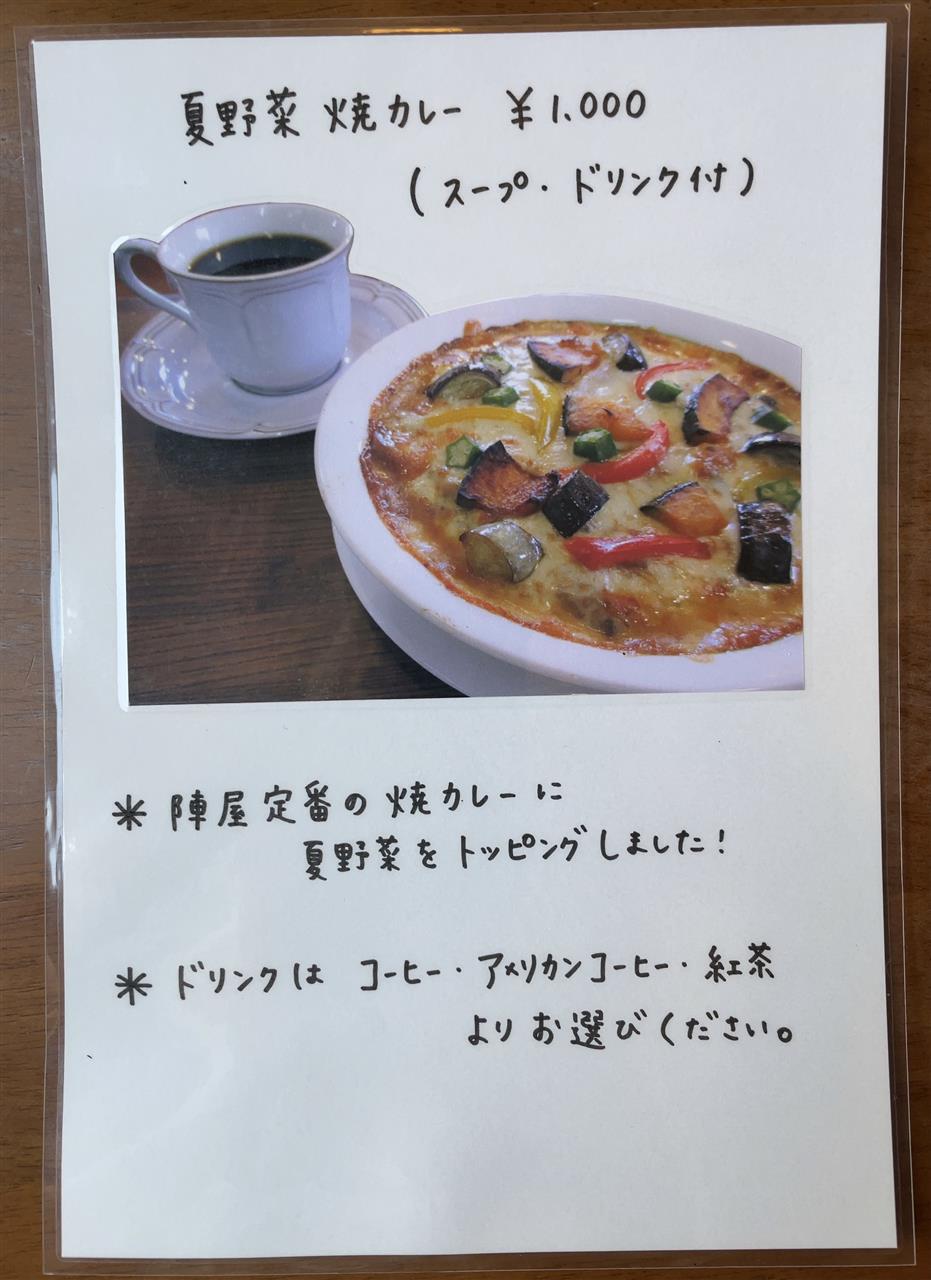 夏野菜 焼カレー ¥1.000
(スープ・ドリンク付)
* 陣屋定番の焼カレーに
夏野菜をトッピングしました!
* ドリンクは コーヒー・アメリカンコーヒー・紅茶
よりお選びください。